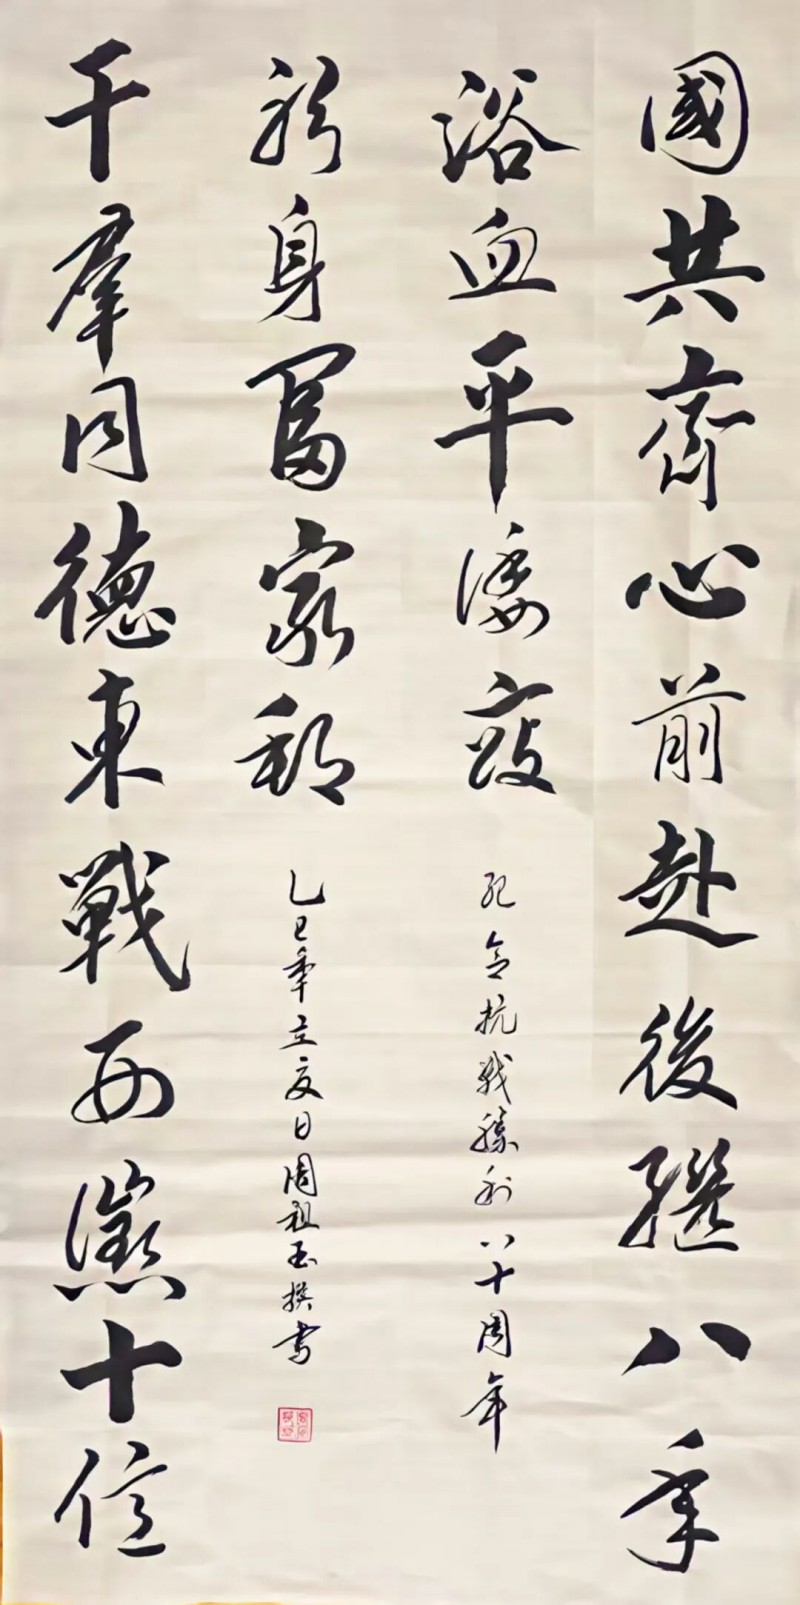 國共齊心前赴後繼八年
浴血平倭寇
紀念抗戰勝利八十周年
干羣同德東戰西十億
身富家邦
乙巳年立夏日周祖玉撰書